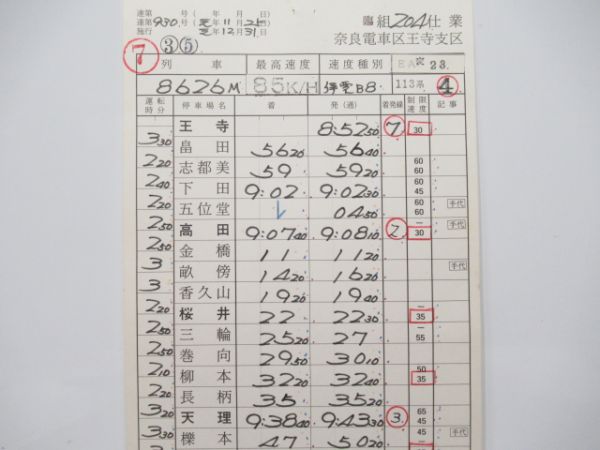 達第 号( 年 月 日)
達第930号(元年11月21日)
施行 元年12月31日
臨 組204仕業
奈良電車区王寺支区
⑦ ③⑤
列車 最高速度 速度種別 EA定 23.
8626M 85K/H 停電B8 113系 ④
運転時分 停車場名 着 発(通) 着発線 制限速度 記事
王寺 8:52 50 7 30
3 30
畠田 56 20 56 40
2 20
志都美 59 59 20 60 60
2 40
下田 9:02 9:02 30 60 45
2 20
五位堂 レ 04 50 60 60 手代
2 50
高田 9:07 40 9:08 10 2 ― 30 手代
2 50
金橋 11 11 20
3
畝傍 14 20 16 20 手代
3
香久山 19 20 19 40
2 20
桜井 22 22 30 ― 35
2 50
三輪 25 20 27 ― 55
2 50
巻向 29 50 30 10
2 10
柳本 32 20 32 40 50 35
2 20
長柄 35 35 20
3 20
天理 9:38 40 9:43 30 3 65 45
3 30
櫟本 47 50 20 45 手代